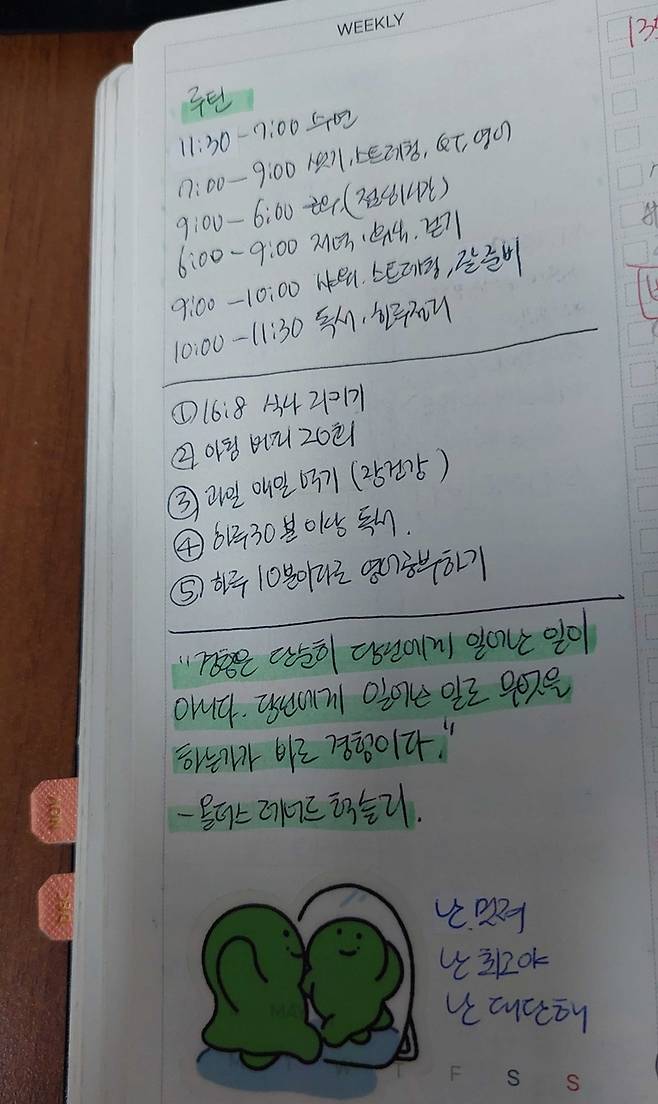 WEEKLY
루틴
11:30 - 7:00 수면
7:00 - 9:00 씻기, 스트레칭, QT, 영어
9:00 - 6:00 근무 (점심시간)
6:00 - 9:00 저녁, 걷기
9:00 - 10:00 샤워, 스트레칭, 잘준비
10:00 - 11:30 독서, 하루정리
① 16:8 식사 지키기
② 아침 버피 20회
③ 과일 매일 먹기 (장건강)
④ 하루 30분 이상 독서.
⑤ 하루 10분이라도 영어공부하기
"경험은 단순히 당신에게 일어난 일이
아니다. 당신에게 일어난 일로 무엇을
하는가가 바로 경험이다."
- 올더스 레너드 헉슬리.
난 멋져
난 최고야
난 대단해
MAY
T F S S
NOV
DEC